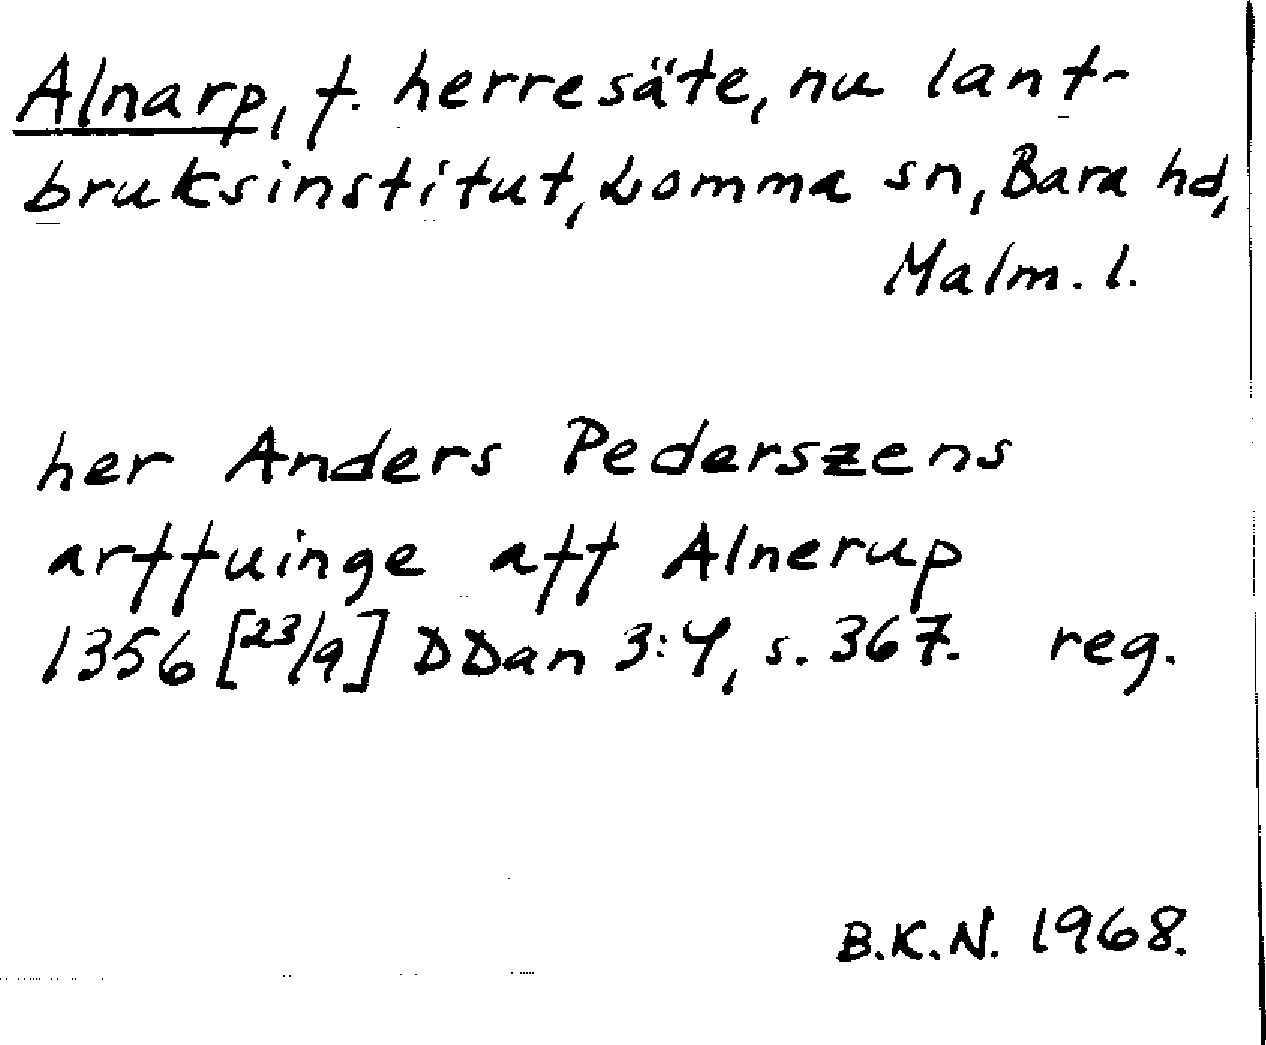 Alnarp, f. herresäte, nu lant-
bruksinstitut, Lomma sn, Bara hd,
Malm. l.
her Anders Pederszens
arffuinge aff Alnerup
1356 [23/9] DDan 3:4, s. 367. reg.
B.K.N. 1968.